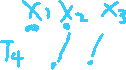 X1 X2 X3
T4 / /